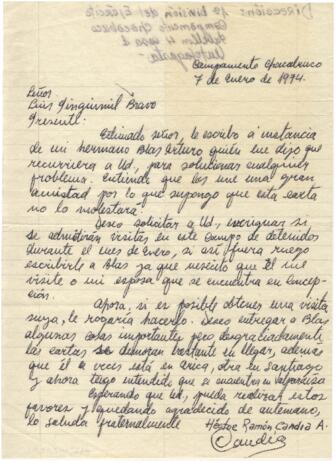 Dirección: 1ª División del Ejército
Campamento Chacabuco
Pabellón 4 casa 2
Antofagasta
Campamento Chacabuco
7 de Enero de 1974.
Señor
Luis Bravo
Presente:
Estimado señor, le escribo a instancia
de mi hermano Blas Arturo quién me dijo que
recurriera a Ud, para solucionar cualquier
problema. Entiendo que los une una gran
amistad por lo que supongo que esta carta
no lo molestará.
Deseo solicitar a Ud, averiguar si
se admitirán visitas en este Campo de detenidos
durante el mes de enero, si así fuera ruego
escribirle a Blas ya que necesito que él me
visite o mi esposa que se encuentra en Concep-
ción.
Ahora, si es posible obtener una visita
suya, le rogaría hacerlo. Deseo entregar a Blas
algunas cosas importantes pero desgraciadamente
las cartas se demoran bastante en llegar, además
que él a veces está en Arica, otra en Santiago
y ahora tengo entendido que se encuentra en Valparaíso
Esperando que Ud, pueda realizar estos
favores y quedando agradecido de antemano,
lo saluda fraternalmente Héctor Ramón Candia A.
Candia